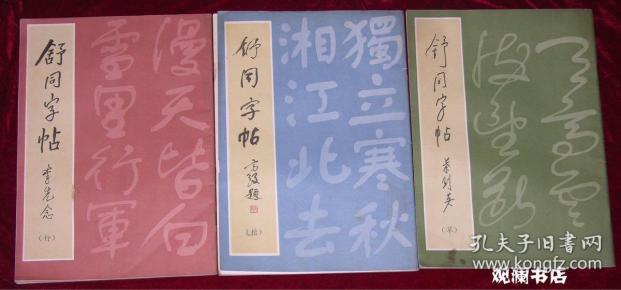 舒同字帖
李先念
（行）
漫天皆白
雪里行軍
舒同字帖
方毅題
（楷）
獨立寒秋
湘江北去
舒同字帖
叶剑英
（草）
天高云
孔夫子旧书网
www.kongfz.com
观澜书店